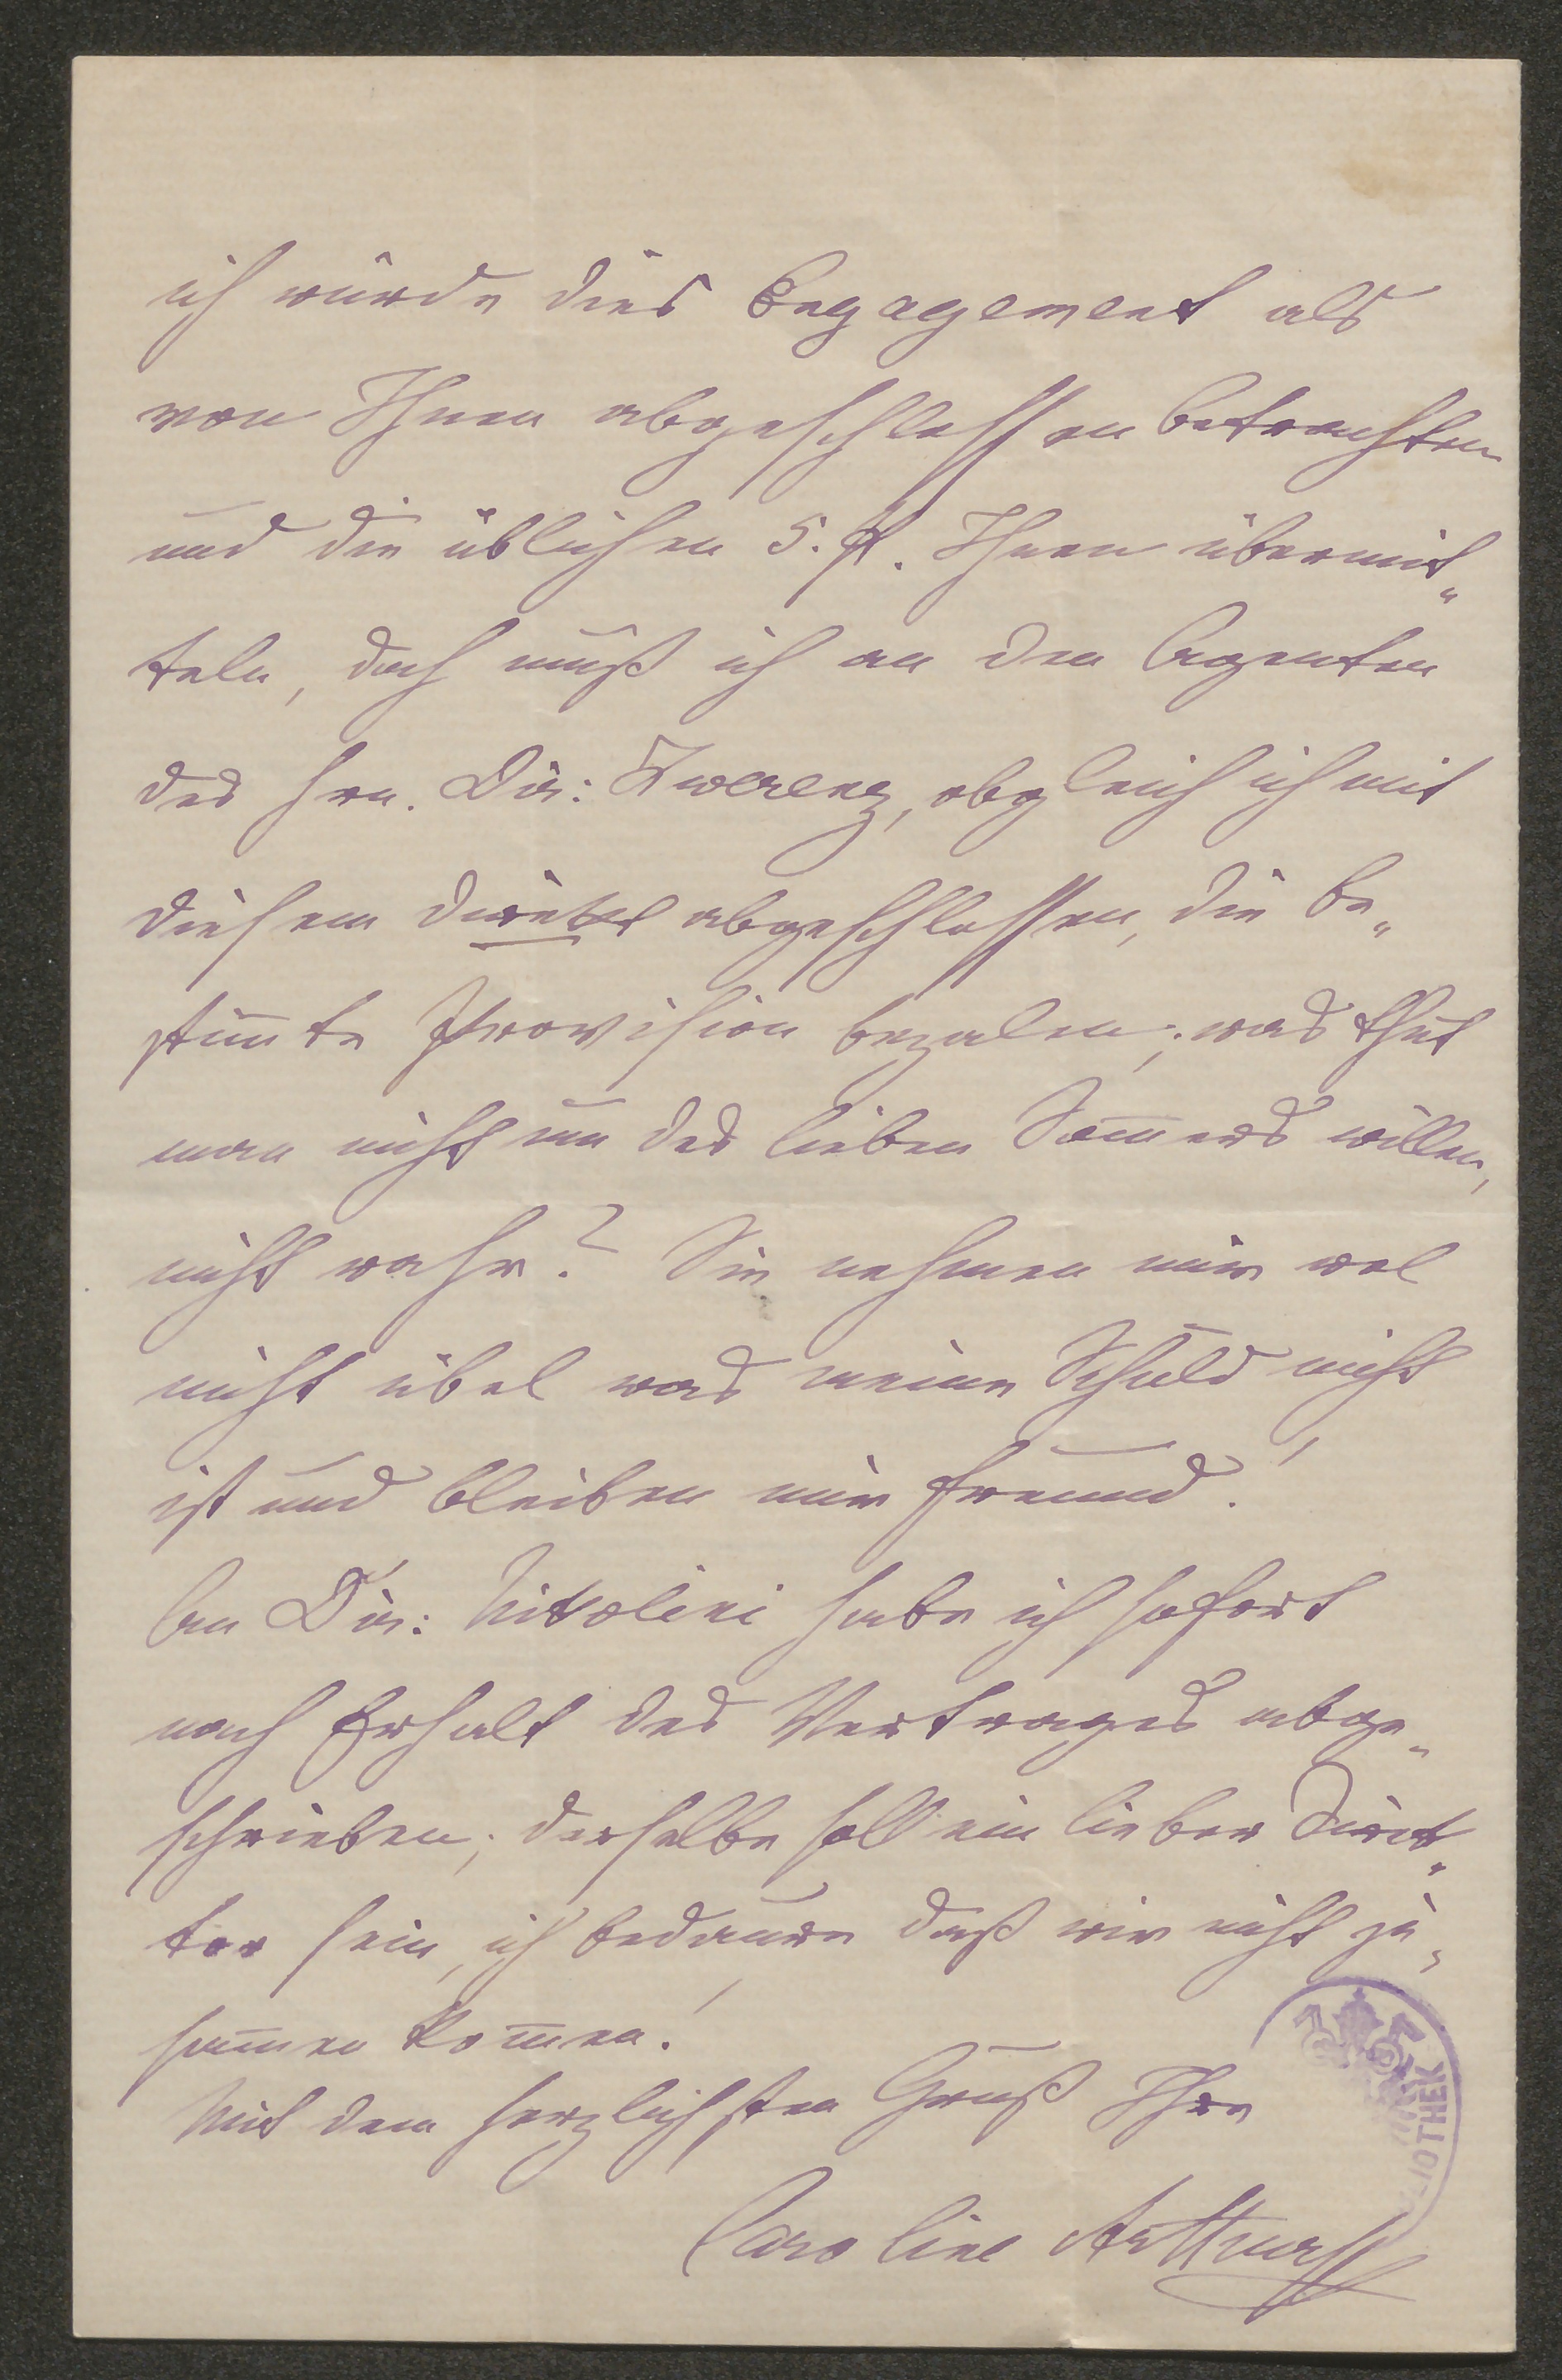 ich würde dies Engagement als
von Ihnen abgeschlossen betrachten
und die üblichen 5. fl. Ihnen übermit„
teln, doch muß ich an den Agenten
des Hrn. Dir: Zwerenz, obgleich ich mit
diesem direkt abgeschlossen, die be„
stim̄te Provision bezalen; was thut
man nicht um des lieben Som̄ers willen,
nicht wahr? Sie nehmen mir wol
nicht übel was meine Schuld nicht
ist und bleiben mir Freund!
An Dir: Nikolini habe ich sofort
nach Erhalt des Vertrages abge„
schrieben; derselbe soll ein lieber Direk„
tor sein, ich bedaure daß wir nicht zu„
sam̄en kom̄en!
Mit dem herzlichsten Gruß Ihre
Caroline
LIOTHEK